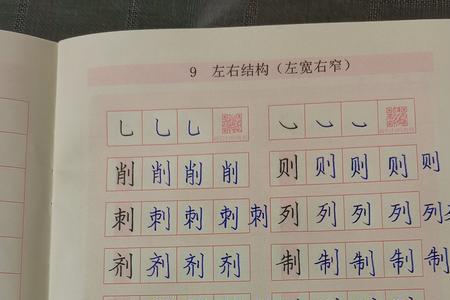 9 左右结构（左宽右窄）
乚 乚 乚 ㇃ ㇃ ㇃
削 削 削 削 则 则 则 则 则
刺 刺 刺 刺 刺 列 列 列 列 列
剂 剂 剂 剂 制 制 制 制 制